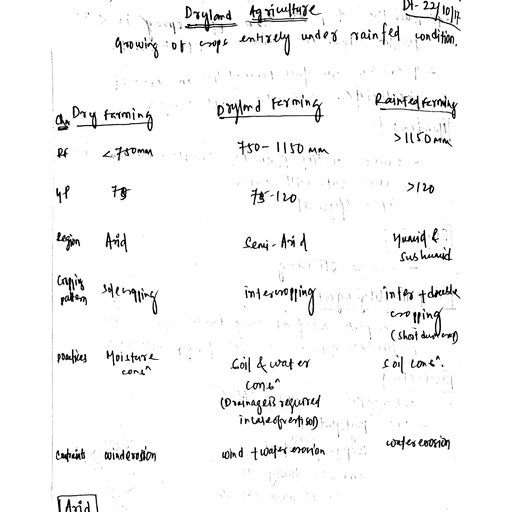 Dryland Agriculture Dt- 22/10/17
Growing of crops entirely under rainfed condition.
Dry farming Dryland Farming Rainfed farming
Rf <750mm 750-1150mm >1150mm
75 75-120 >120
Region Arid Semi-Arid Humid &
Subhumid
Cropping
pattern sole cropping intercropping inter + double
cropping
practices Moisture Soil & water soil consⁿ.
consⁿ consⁿ
(Drainage is required
in case of vertisol)
Constraints wind erosion wind + water erosion water erosion
Arid